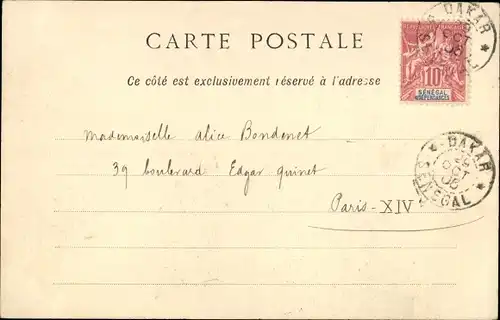 DAKAR
OCT
RÉPUBLIQUE FRANÇAISE
10
SÉNÉGAL
CARTE POSTALE
Ce côté est exclusivement réservé à l'adresse
Mademoiselle Alice Bondenet
39 boulevard Edgar Quinet
Paris-XIV
DAKAR
OCT
SÉNÉGAL